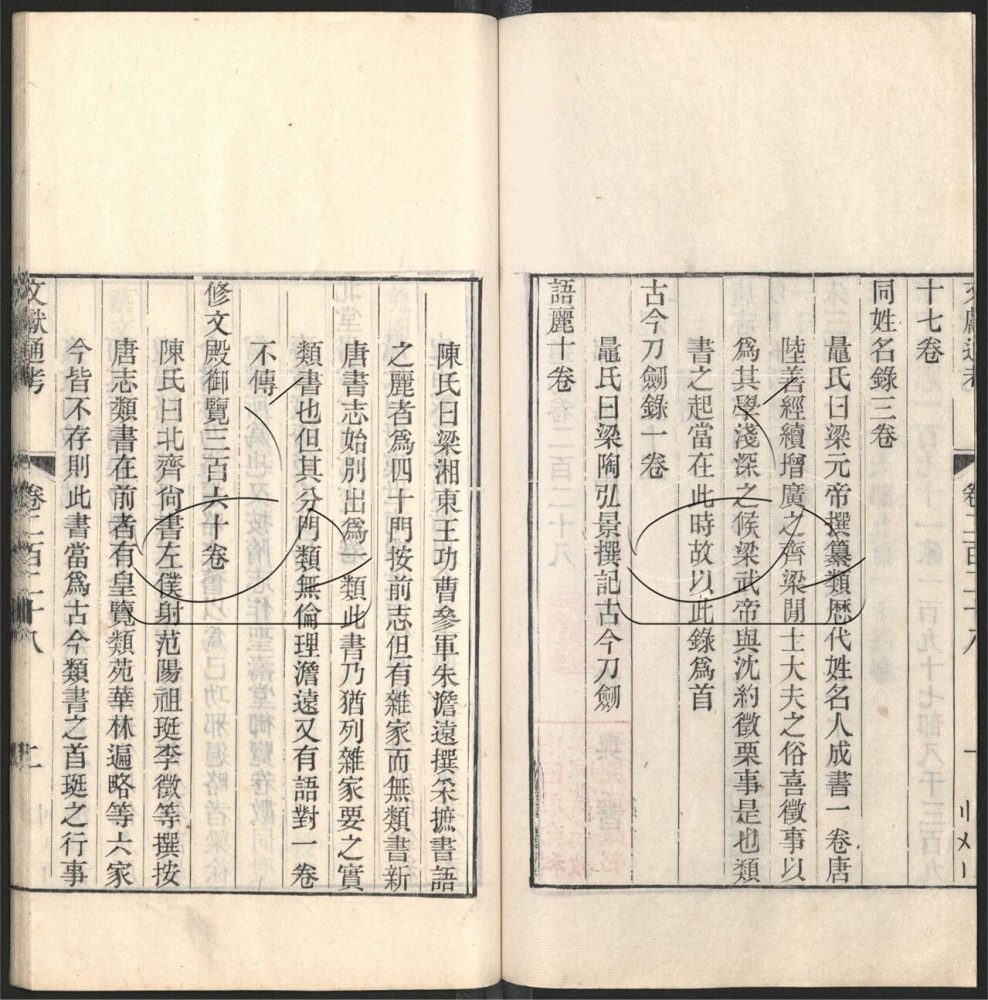 十七卷
同姓名錄三卷
鼂氏曰梁元帝撰纂類歷代姓名人成書一卷唐
陸善經續增廣之齊梁間士大夫之俗喜徵事以
爲其學淺深之候梁武帝與沈約徵栗事是也類
書之起當在此時故以此錄爲首
古今刀劔錄一卷
鼂氏曰梁陶弘景撰記古今刀劔
語麗十卷
陳氏曰梁湘東王功曹參軍朱澹遠撰采摭書語
之麗者爲四十門按前志但有雜家而無類書新
唐書志始別出爲一類此書乃猶列雜家要之實
類書也但其分門類無倫理澹遠又有語對一卷
不傳
修文殿御覽三百六十卷
陳氏曰北齊尙書左僕射范陽祖珽李徵等撰按
唐志類書在前者有皇覽類苑華林遍略等六家
今皆不存則此書當爲古今類書之首珽之行事
文獻通考 卷二百二十八 二